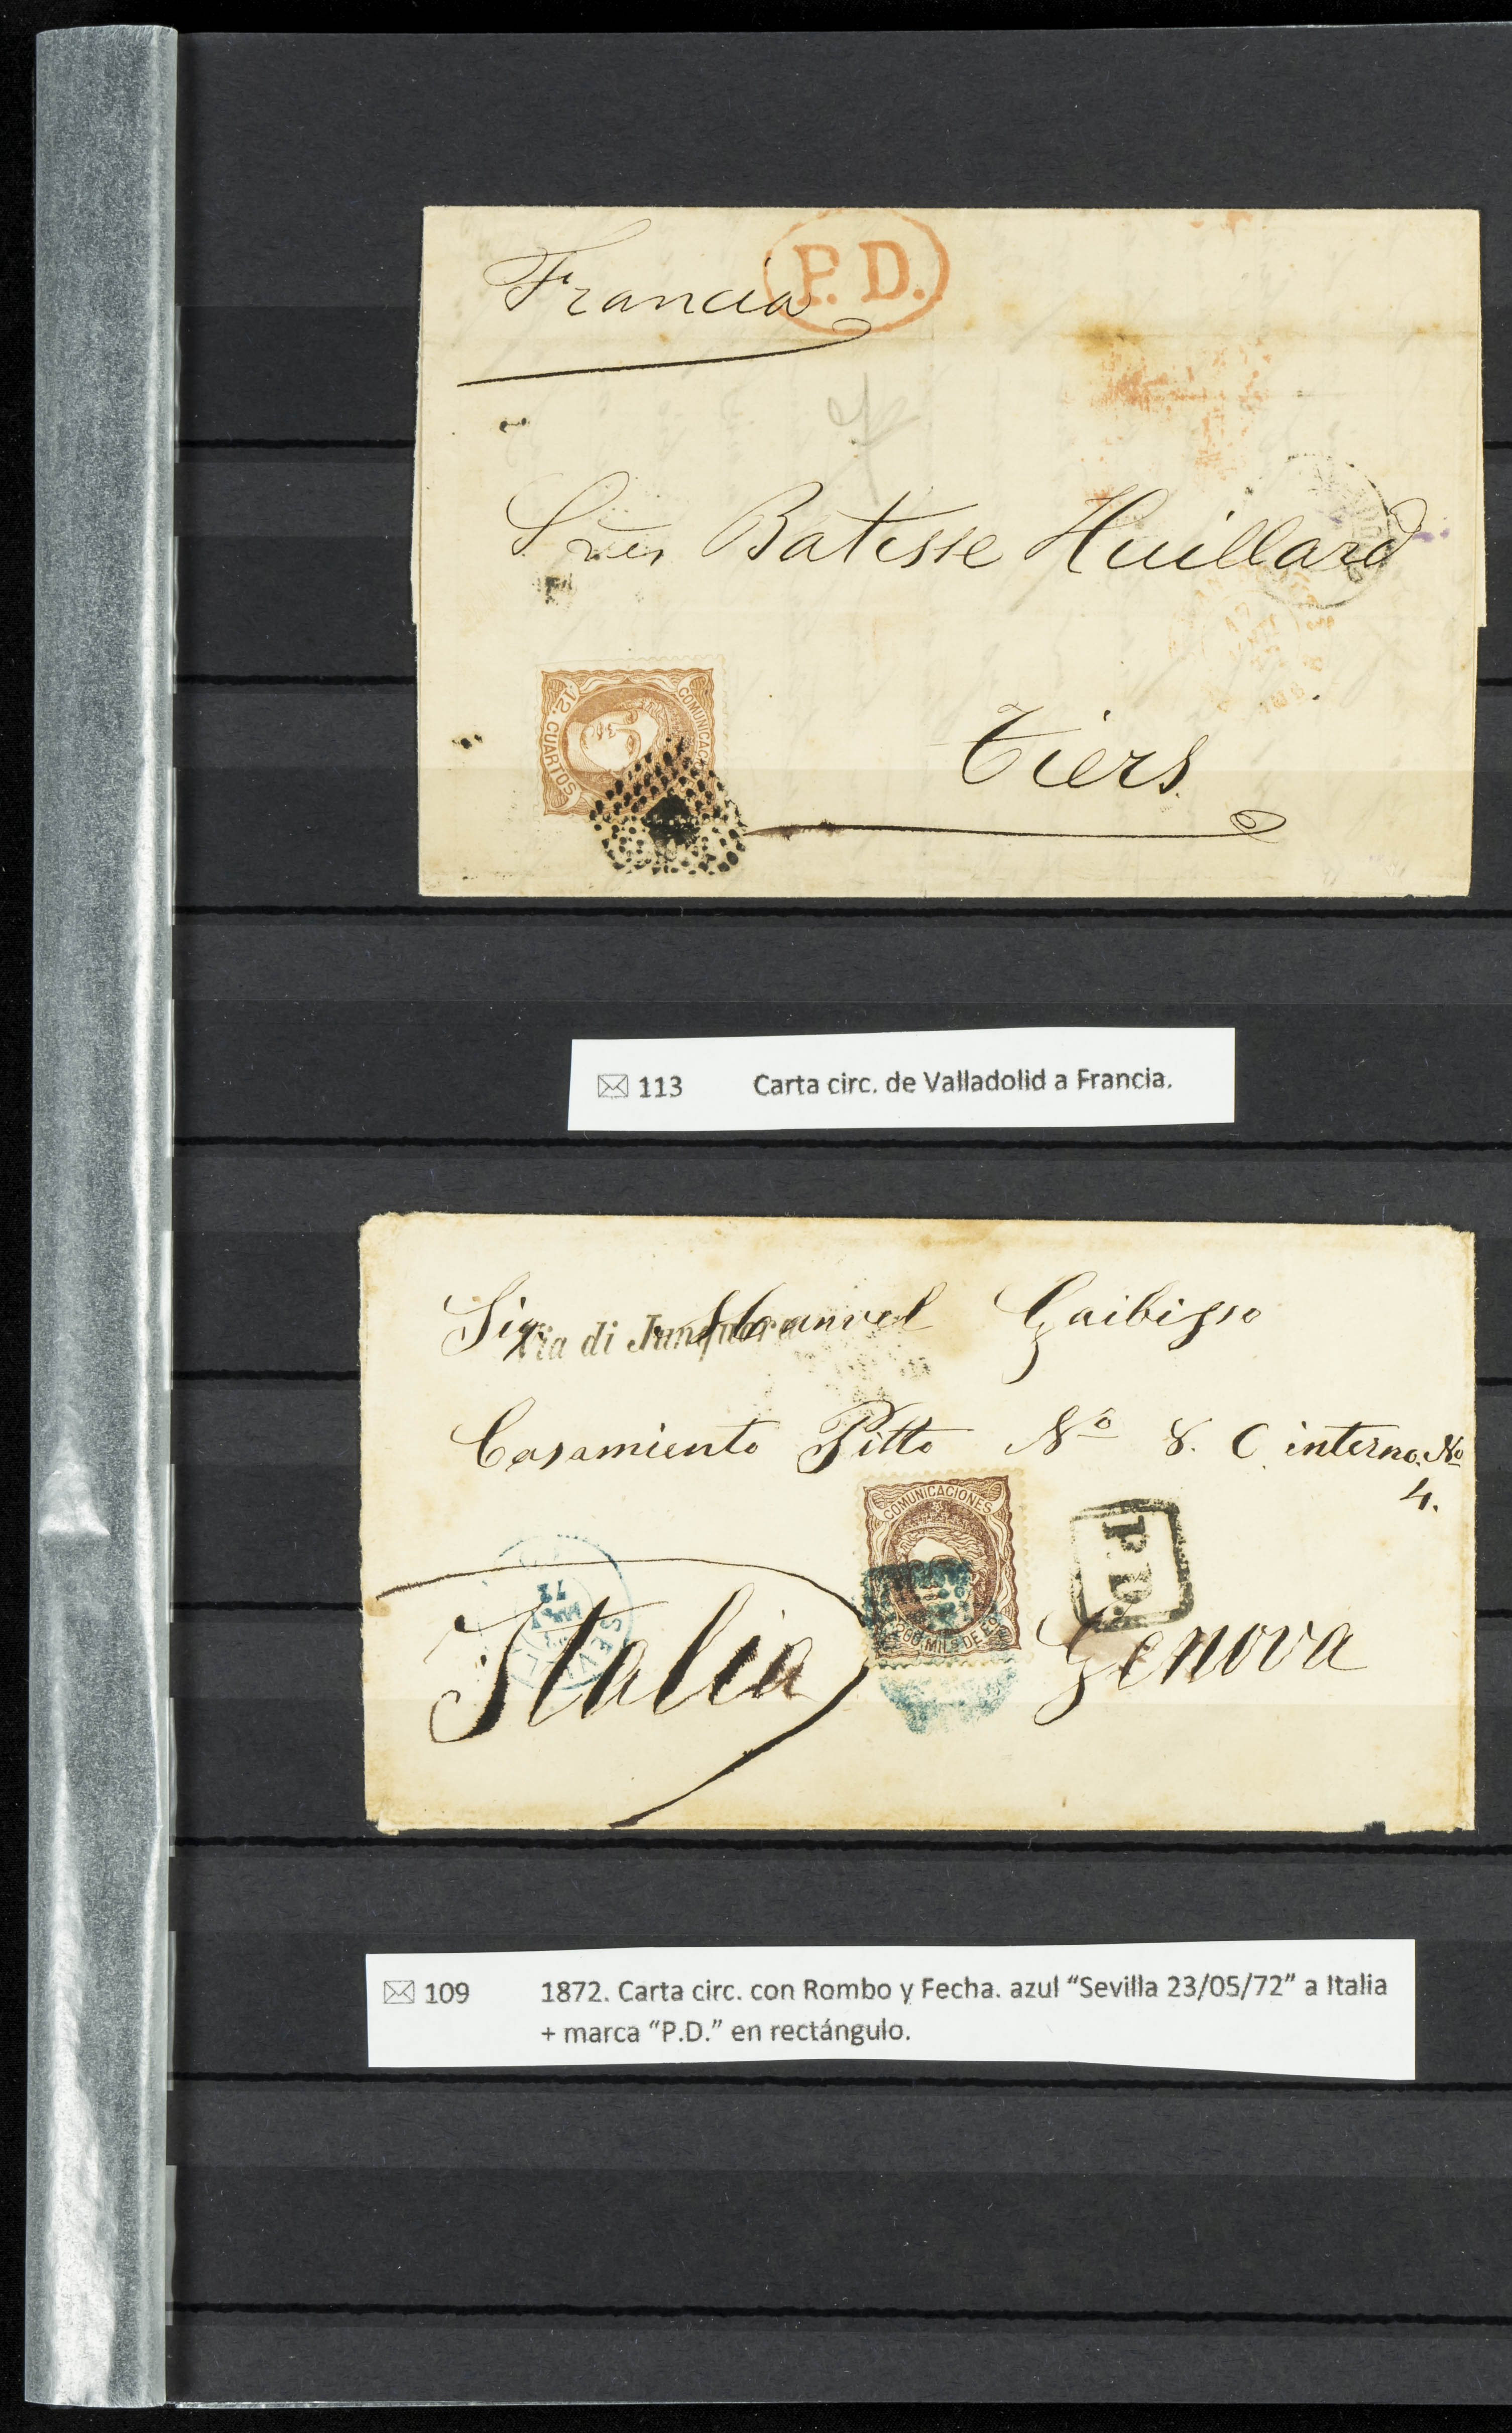 P.D.
Francia
Sres Batisse Huillard
12. CUARTOS
COMUNICAC
Tiers.
113 Carta circ. de Valladolid a Francia.
Sig. Manuel Gaibisso
Via di Junquera
Casamiento Pitto Nº 8. C. interno. Nº
4.
COMUNICACIONES
200 MILS DE Eo
P.D.
SEVILLA
MAY
72
Italia
Genova
109 1872. Carta circ. con Rombo y Fecha. azul “Sevilla 23/05/72” a Italia
+ marca “P.D.” en rectángulo.